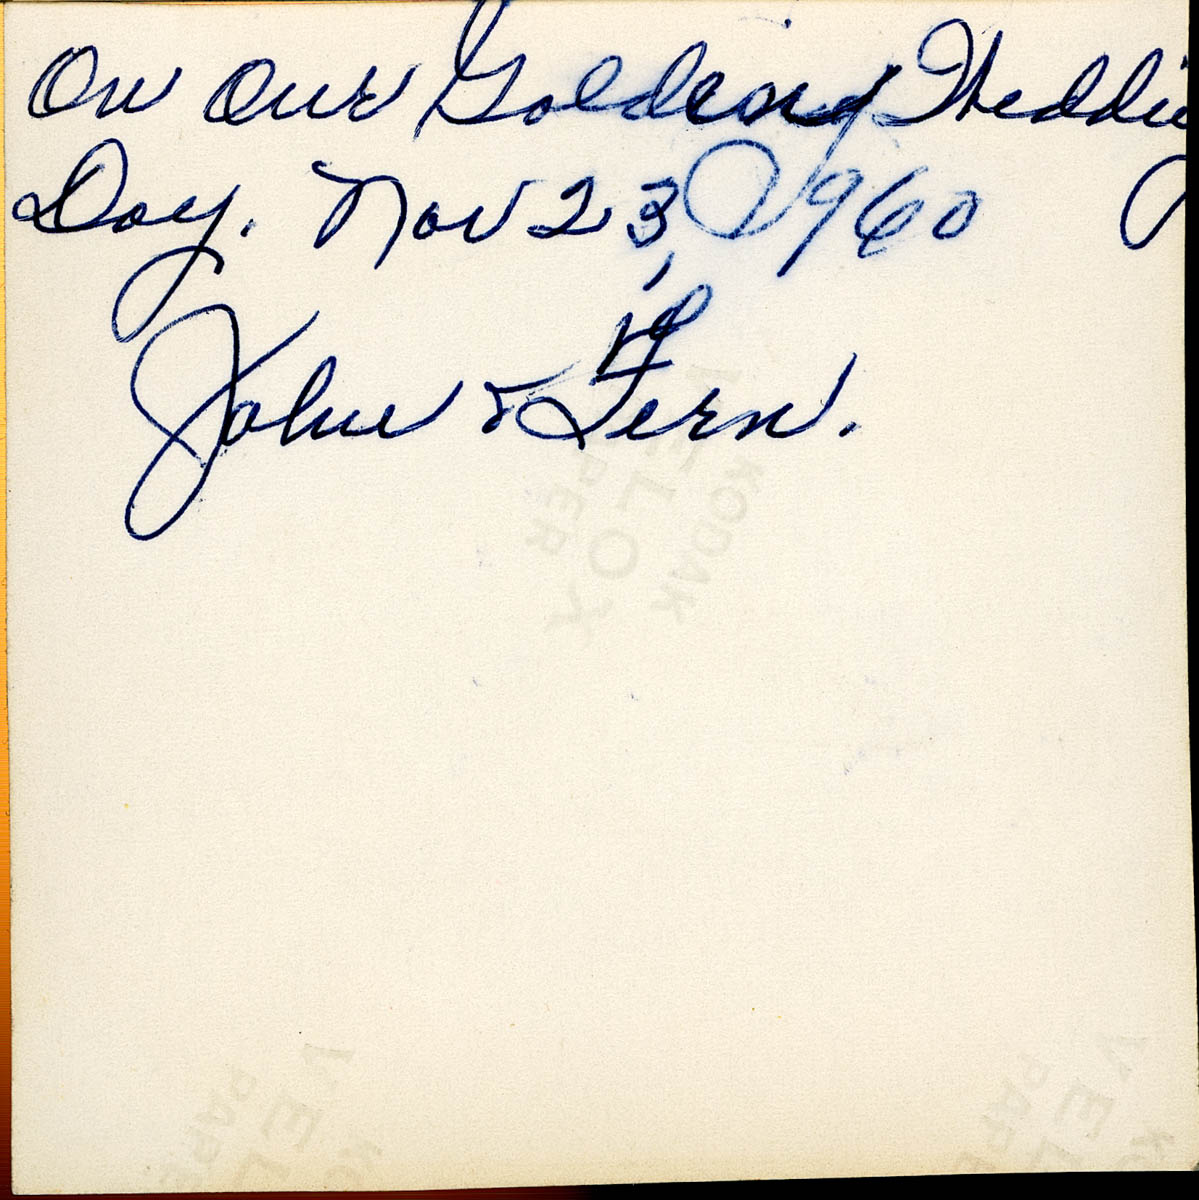 On Our Golding Wedding
Day. Nov 23, 1960
John & Fern.
KODAK
VELOX
PAPER
VELOX
PAPE
VEL
PAPE